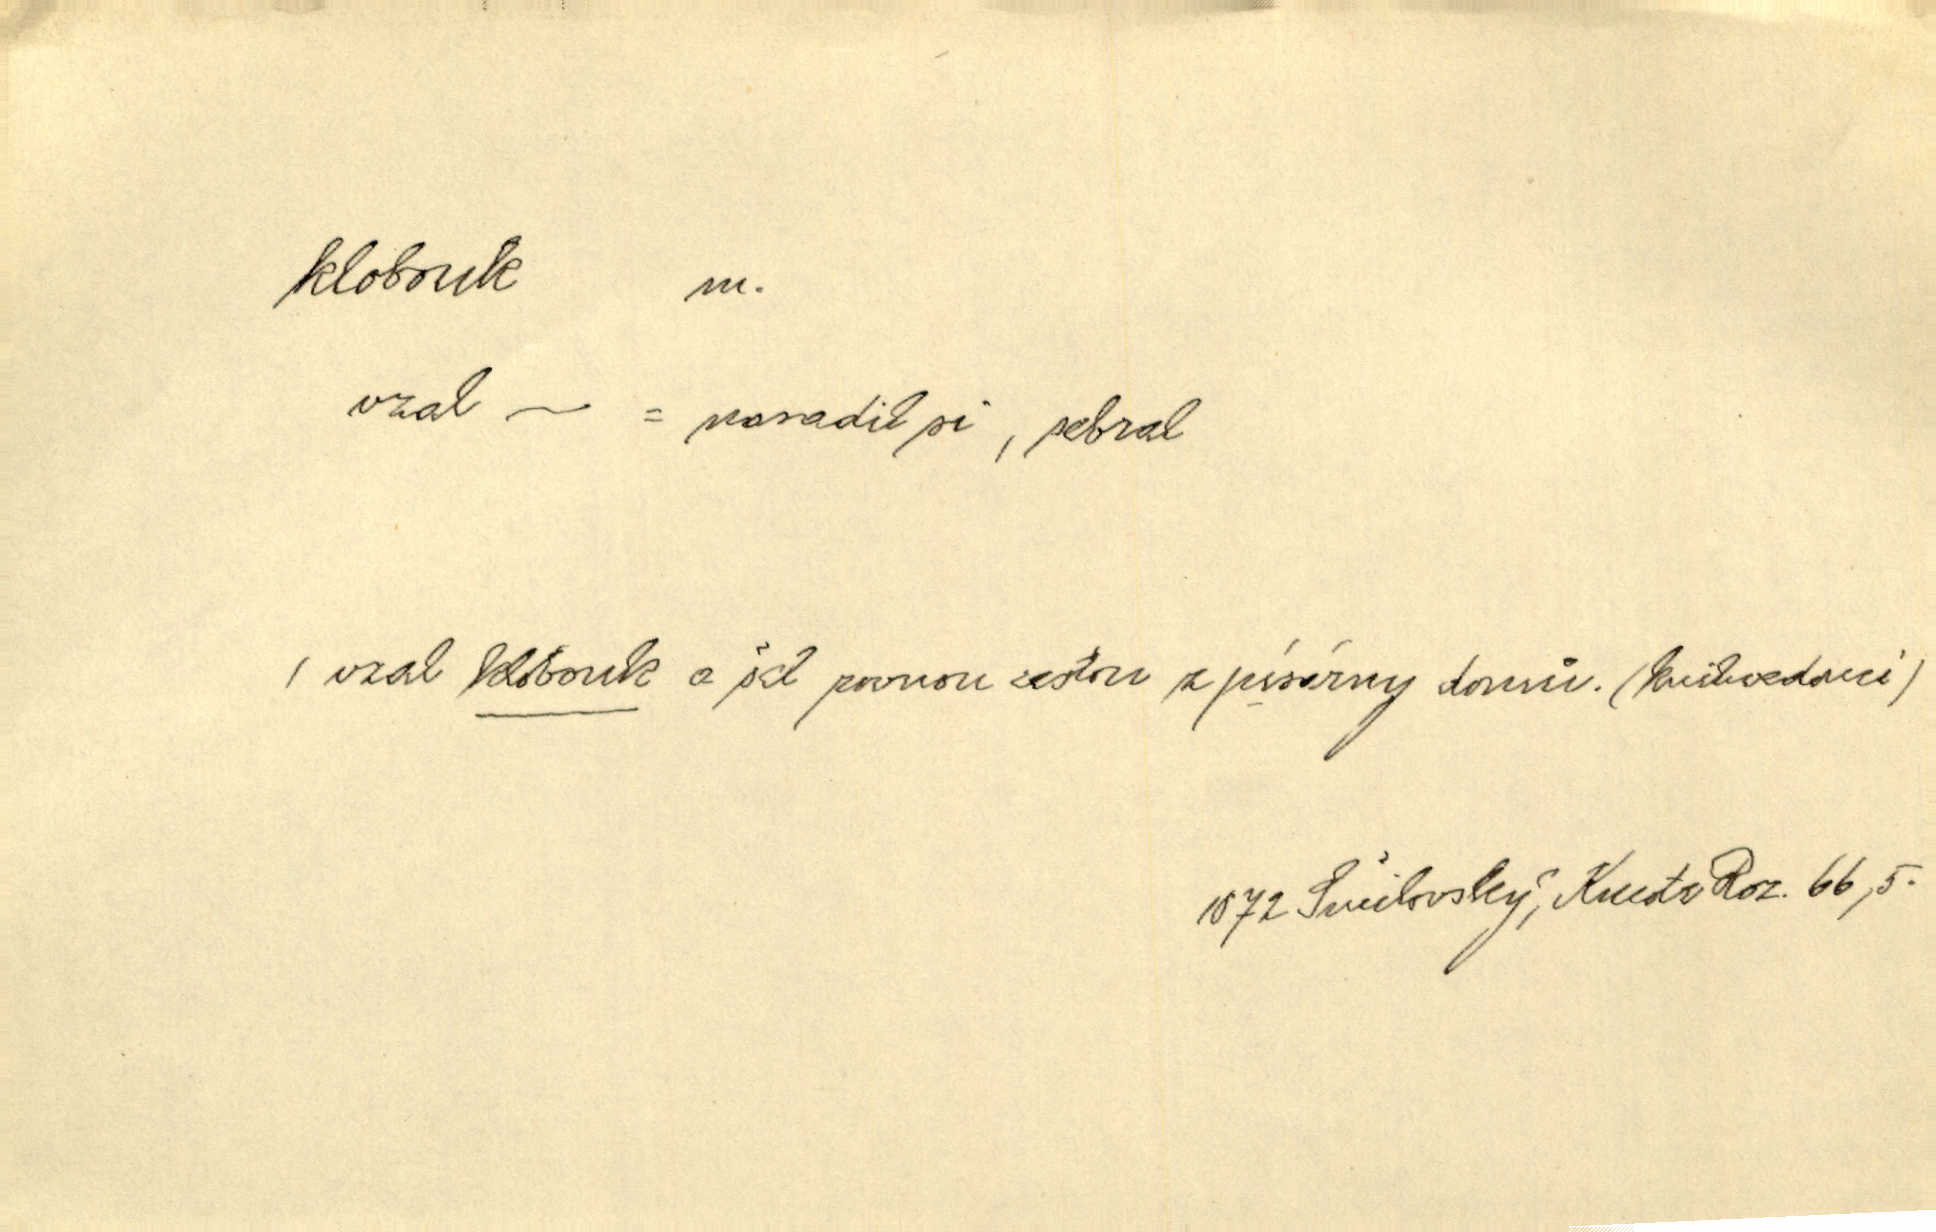 klobouk m.
vzal ~ = nasadil si, sebral
/ vzal klobouk a šel rovnou cestou z písárny domů. (knihvedoucí)
1872 Šmilovský, Roz. 66,5.